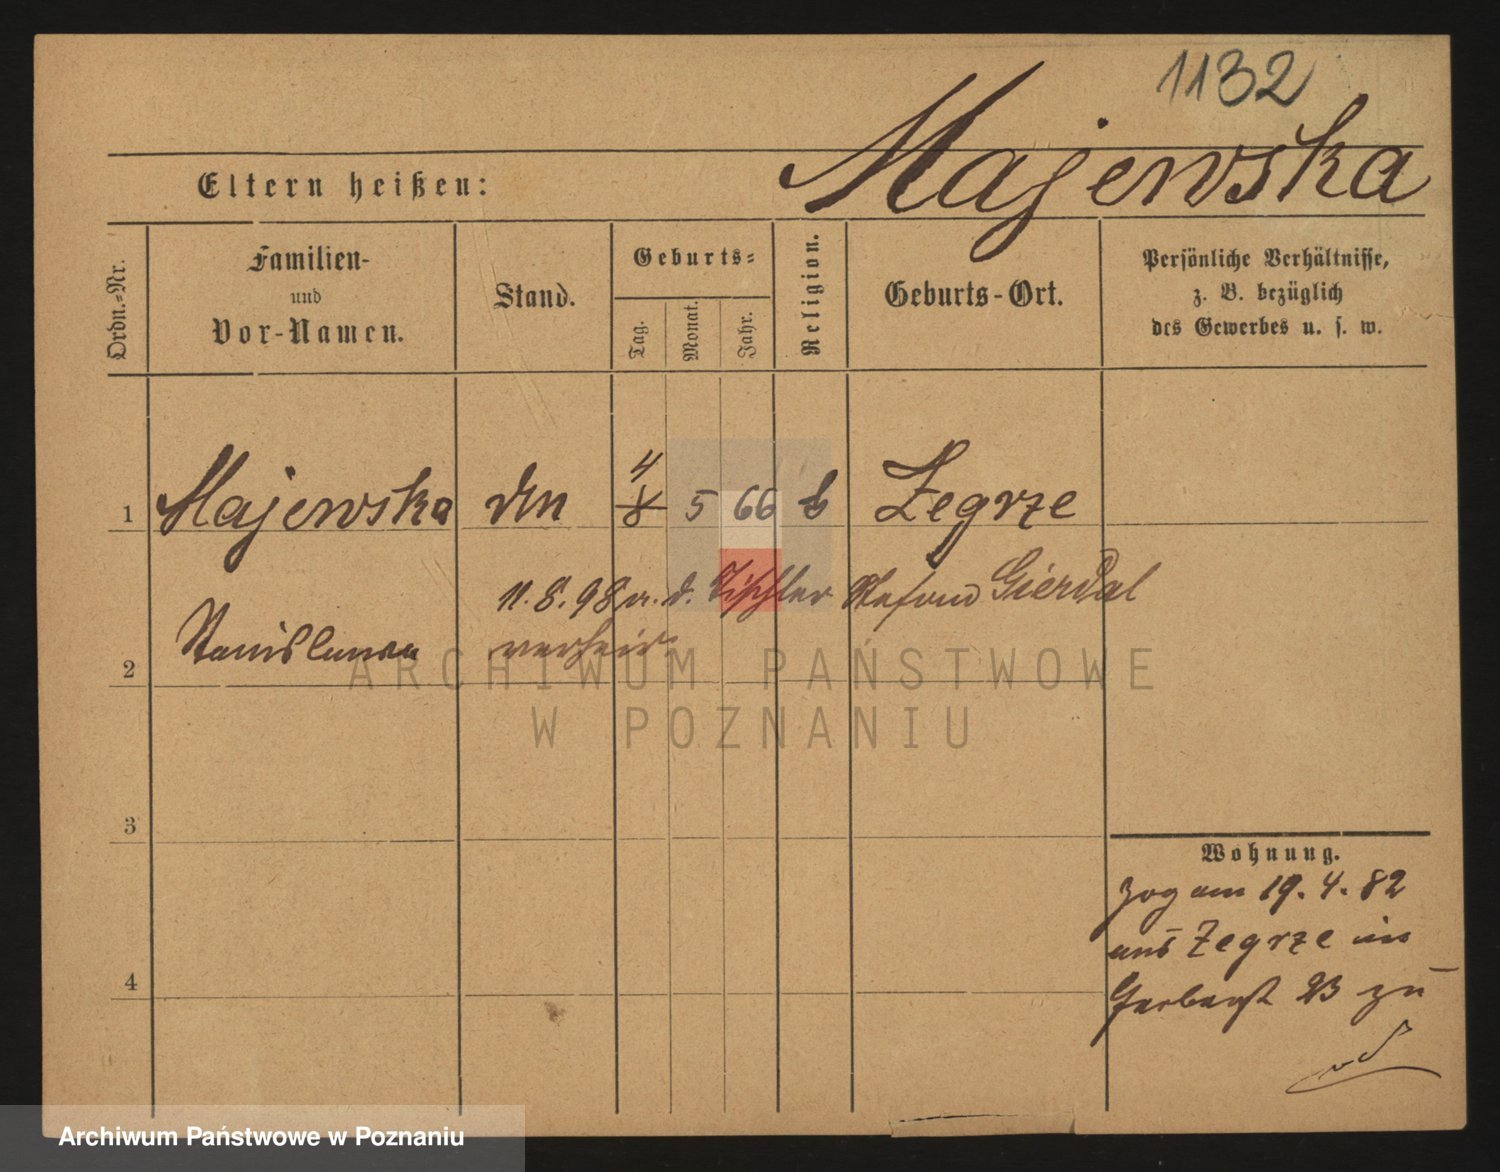 1132
Majewska
Eltern heißen:
Ordn.-Nr.
Familien-
und
Vor-Namen.
Stand.
Geburts-
Tag.
Monat.
Jahr.
Religion.
Geburts-Ort.
Persönliche Verhältnisse,
z. B. bezüglich
des Gewerbes u. s. w.
1 Majewska 4 8 5 66 Zegrze
11.8.98 a. d. Tischler Stefan Gierdal
2 Stanislawa verheir
ARCHIWUM PAŃSTWOWE
W POZNANIU
3
Wohnung.
zog am 19.4.82
aus Zegrze in
Gerberst 23 zu
4
Archiwum Państwowe w Poznaniu